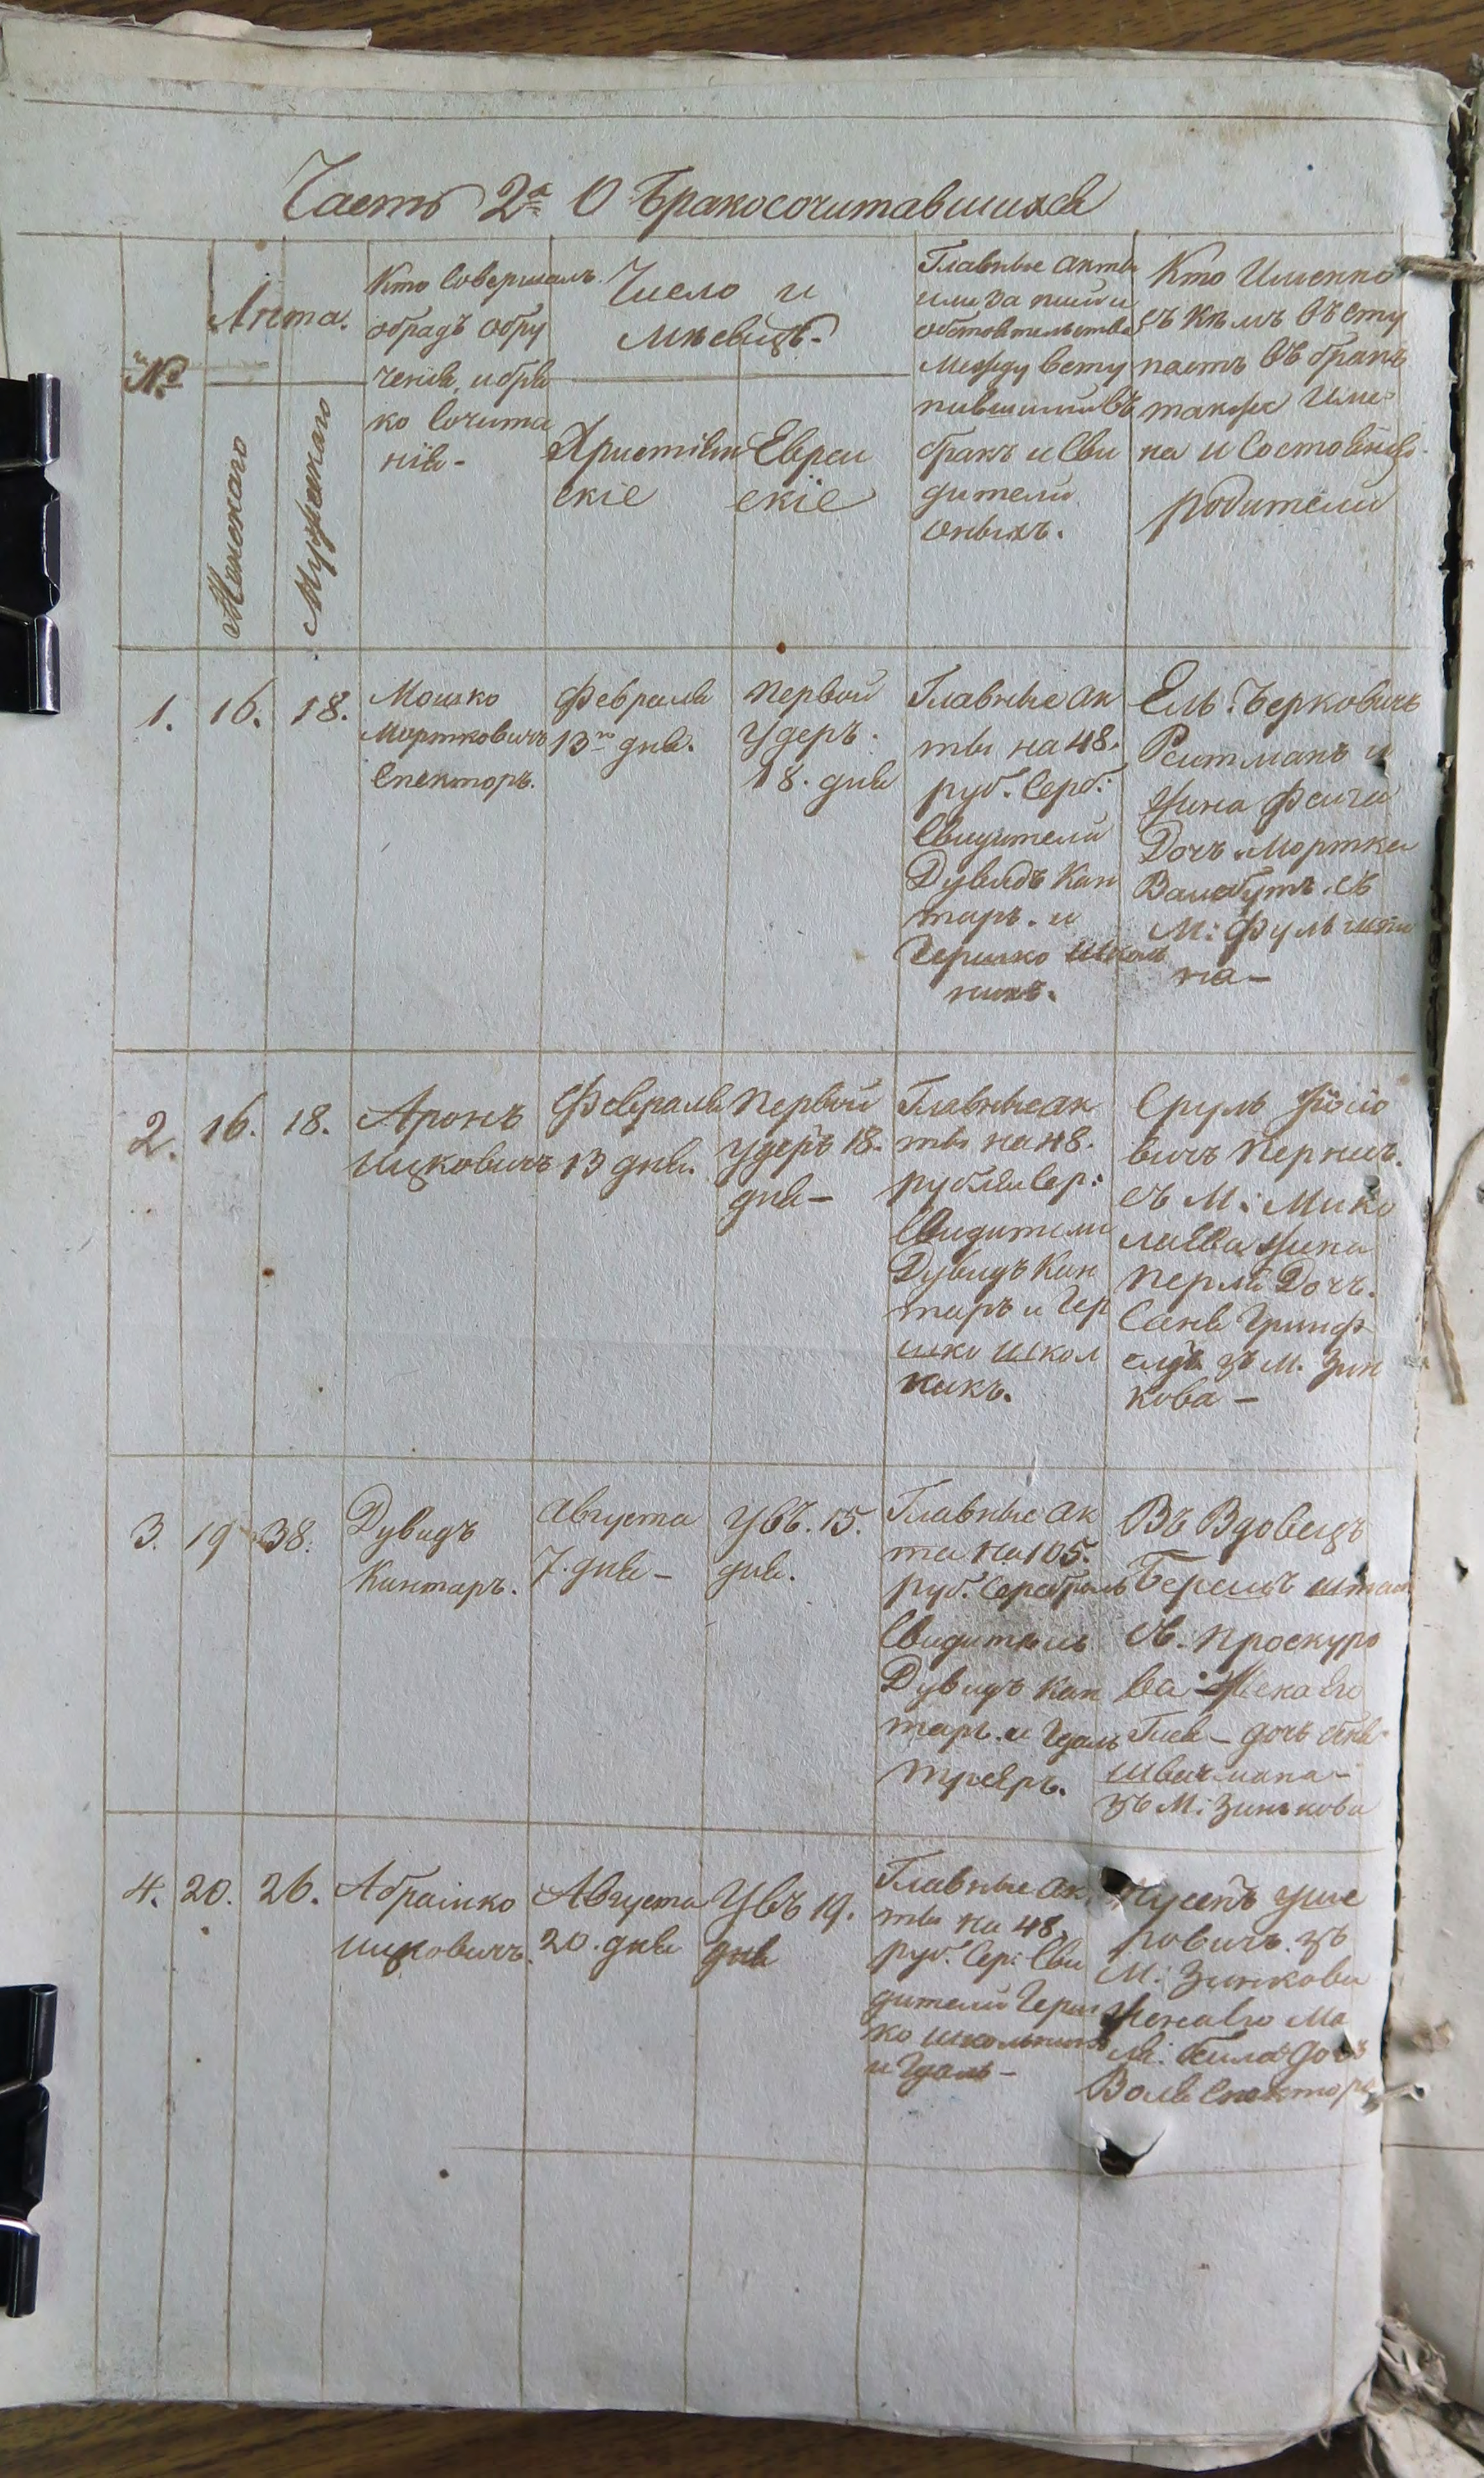 Часть 2ª О Бракосочитавшихся
№
Лета.
Женскаго
Мужескаго
Кто Совершалъ
обрадъ обру
ченія, и бра
ко Сочита
нія -
Число и
Мѣсецъ.
Христіян
скіе
Евреи
скіе
Главные акты
или записи и
обстоятельства
Между всту
пившими въ
бракъ и Сви
дители
оныхъ.
Кто Именно
съ кемъ въсту
паетъ въ бракъ
также Име-
на и Состояніе
родители
1.
16.
18.
Мошко
Мортковичъ
Спекторъ.
Февраля
13го дня.
первой
Удеръ.
18. дня
Главные ак
ты на 48.
руб. Серб:
Свидители
Дувидъ Кан
таръ. и
Гершко Школь
никъ.
Ель. Берковичъ
Реитманъ и
Жина Феига
Дочъ Мортка
съ
М: Фульшти
на -
2.
16.
18.
Аронъ
Ицковичъ
Февраля
13 дня.
первой
Удеръ 18.
дня -
Главные ак
ты на 48.
рубли Сер:
Свидители
Дувидъ Кан
таръ и Гер
шко Школ
никъ.
Сруль
вичъ
съ М: Мико
лаева Жина
перля Дочъ.
Саня Гринф
елдъ зъ М. Зин
кова -
3.
19
38.
Дувидъ
Кантаръ.
Августа
7. дня -
Увъ. 15.
дня.
Главные ак
та на 105.
руб. Серебромъ
Свидитель
Дувидъ Кан
таръ. и Гдаль
Въ Вдовецъ
Берешъ
съ. Проскуро
ва - Жена Его
дочъ
Швачмана -
зъ М: Зинькова
4.
20.
26.
Абрамко
Ицковичъ.
Августа
20. дня
Увъ 19.
дня
Главные ак
ты на 48
руб. Сер: Сви
дители Герш
ко Школьникъ
и Гдаль -
Нусенъ Уше
ровичъ. зъ
М: Зинкова
Жена Его Ма
ля: Беила Дочъ
Воля Спектора